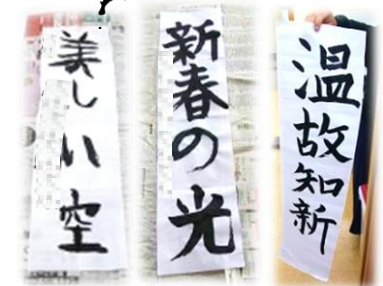 美しい空
新春の光
温故知新